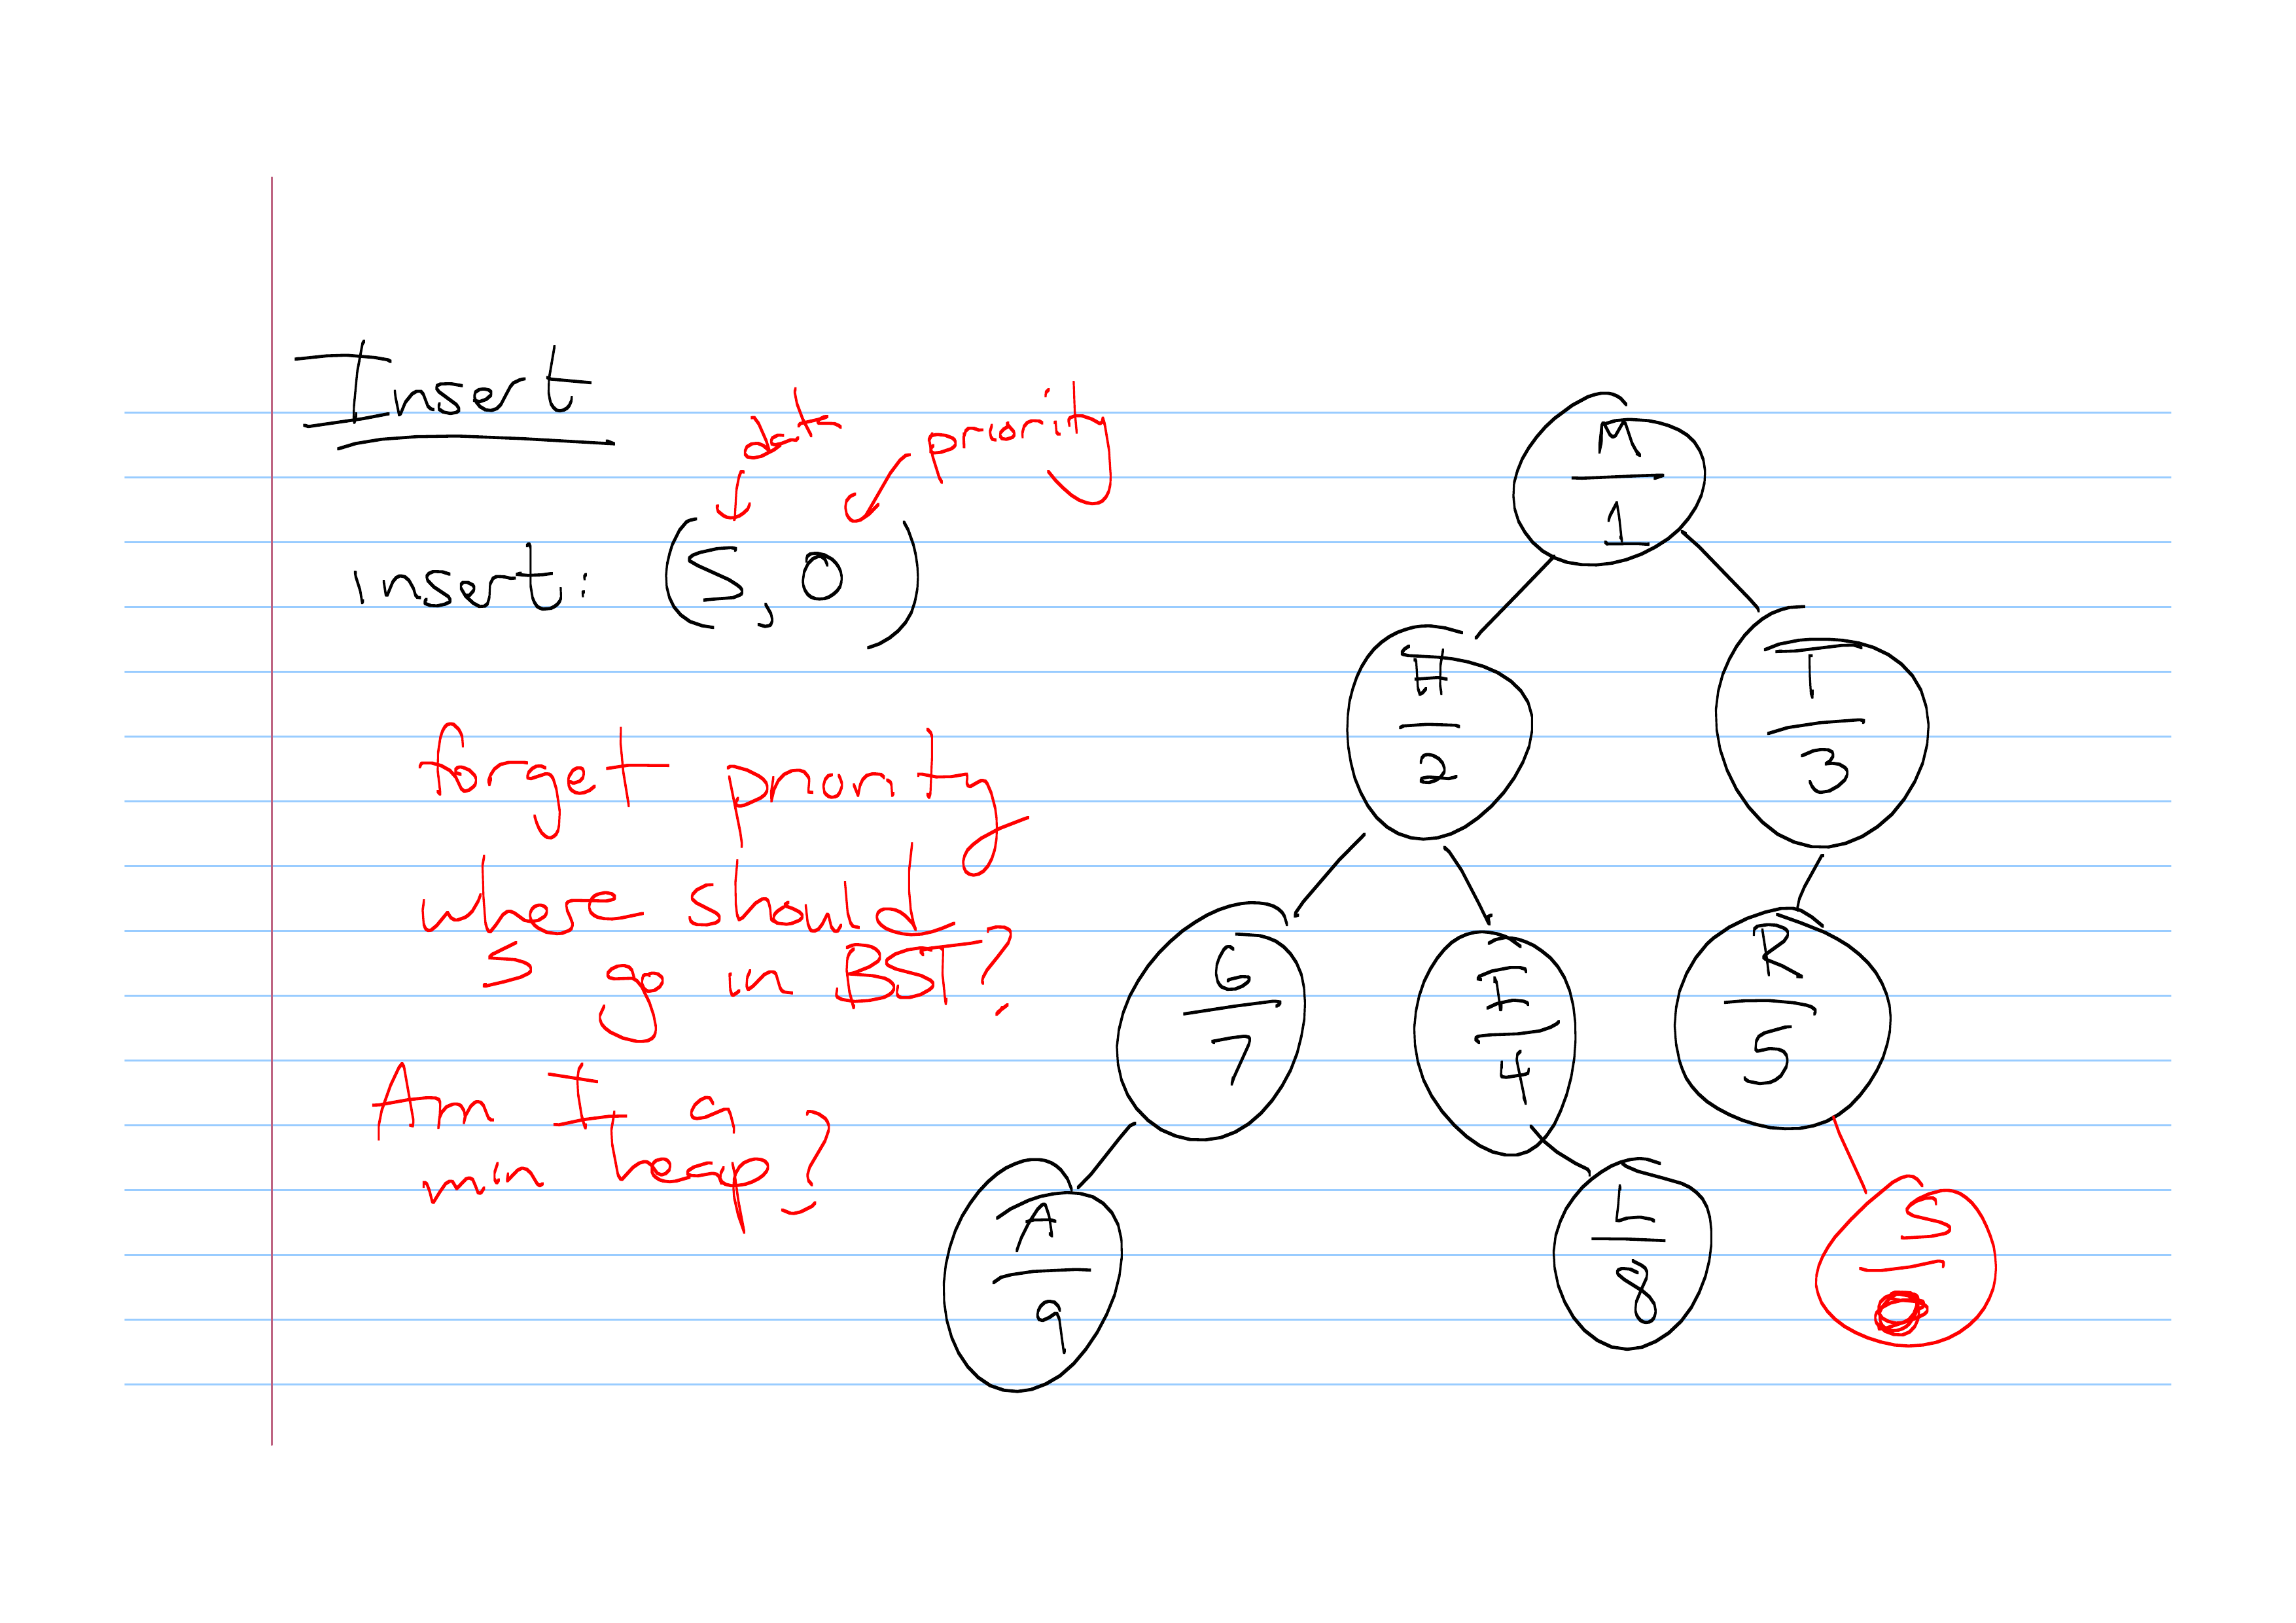 Insert
data priority
insert: (S, 0)
forget priority
where should
S go in BST?
Am I a
min heap?
M
1
H
2
T
3
G
7
I
4
R
5
A
9
L
8
S
0